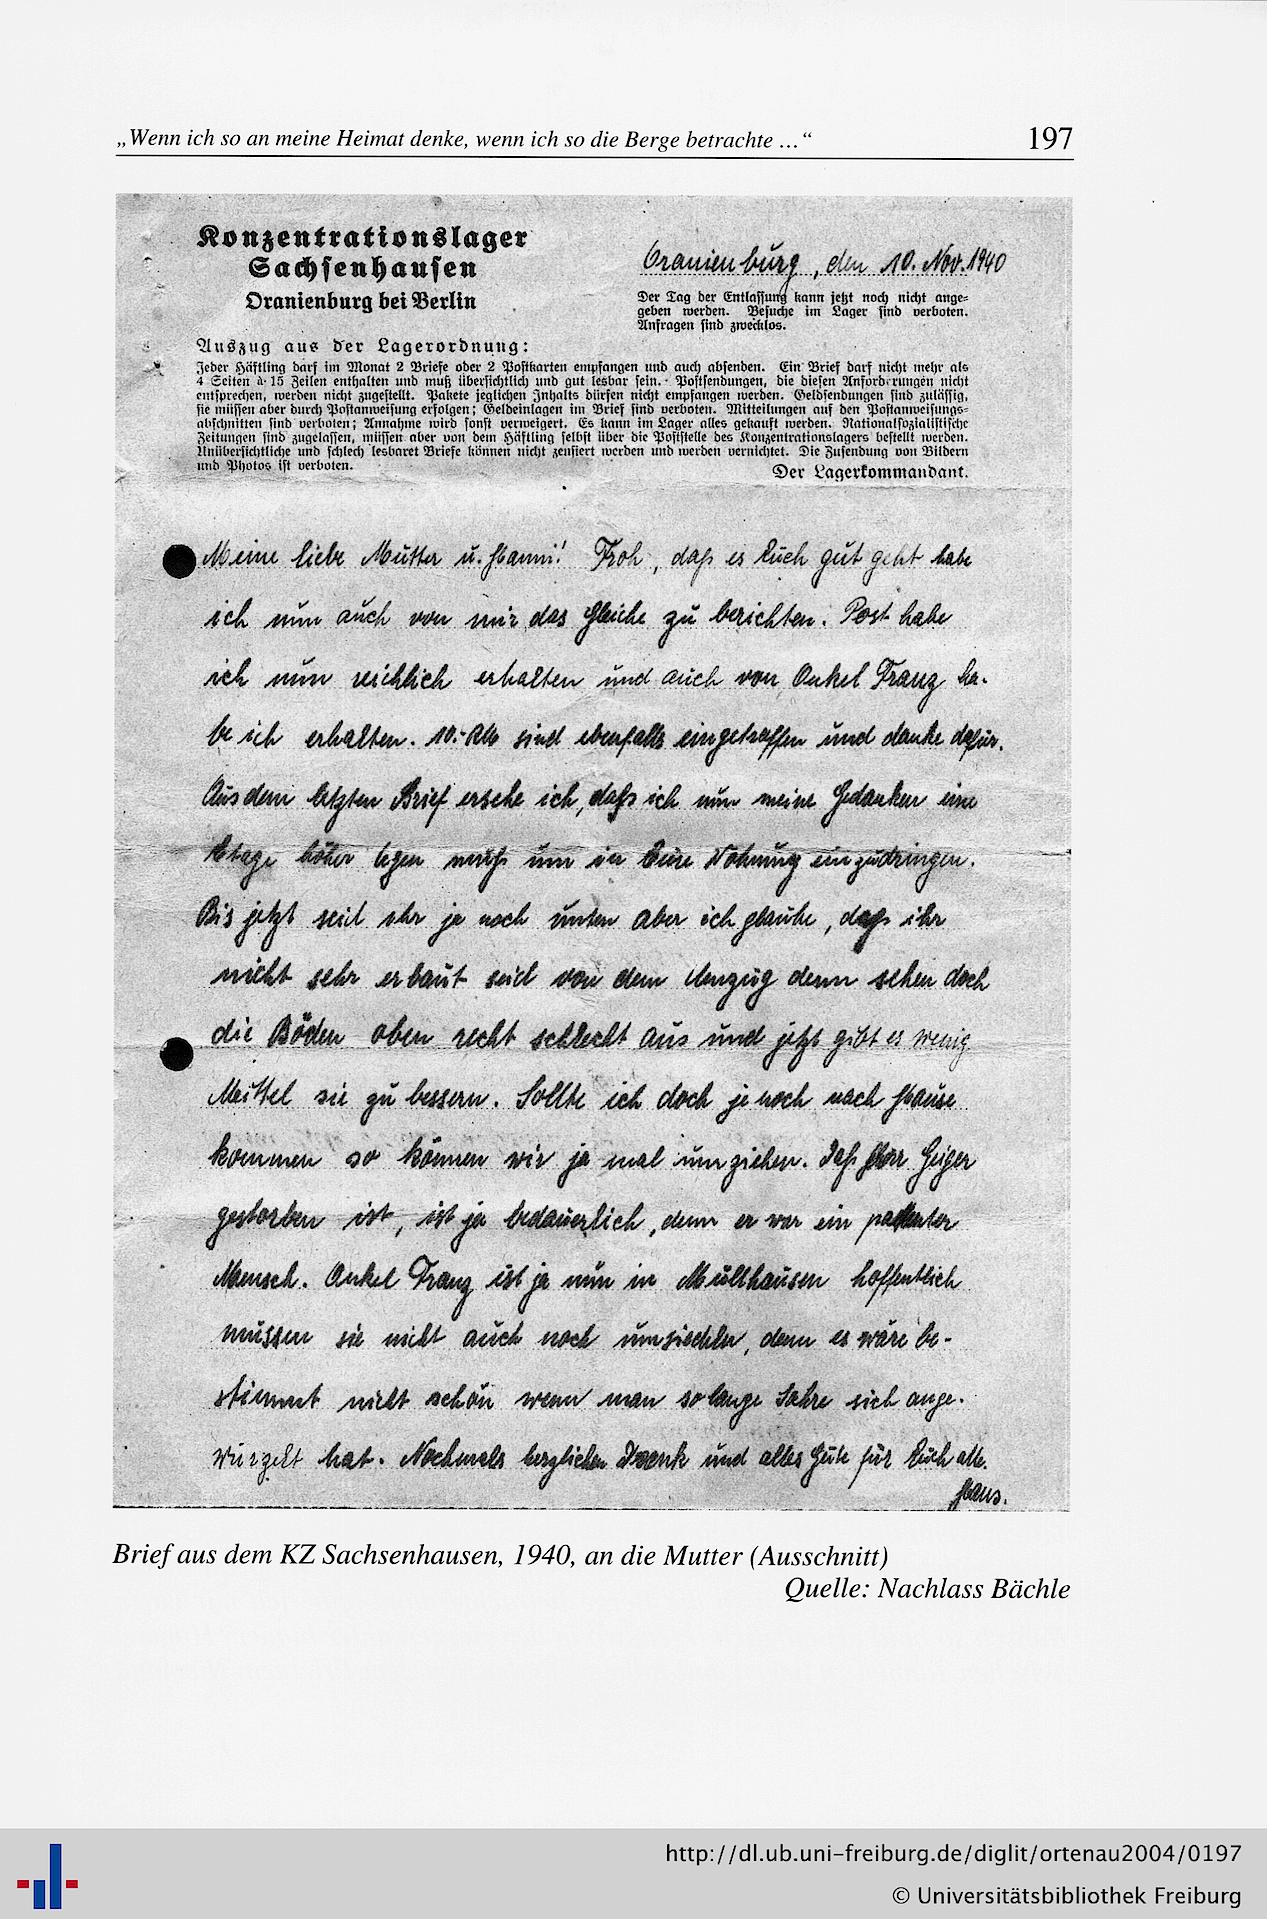 „Wenn ich so an meine Heimat denke, wenn ich so die Berge betrachte …“ 197
Konzentrationslager
Sachsenhausen
Oranienburg bei Berlin
Oranienburg, den 10. Nov. 1940
Der Tag der Entlassung kann jetzt noch nicht ange-
geben werden. Besuche im Lager sind verboten.
Anfragen sind zwecklos.
Auszug aus der Lagerordnung:
Jeder Häftling darf im Monat 2 Briefe oder 2 Postkarten empfangen und auch absenden. Ein Brief darf nicht mehr als
4 Seiten à 15 Zeilen enthalten und muß übersichtlich und gut lesbar sein. Postsendungen, die diesen Anforderungen nicht
entsprechen, werden nicht zugestellt. Pakete jeglichen Inhalts dürfen nicht empfangen werden. Geldsendungen sind zulässig,
sie müssen aber durch Postanweisung erfolgen; Geldeinlagen im Brief sind verboten. Mitteilungen auf den Postanweisungs-
abschnitten sind verboten; Annahme wird sonst verweigert. Es kann im Lager alles gekauft werden. Nationalsozialistische
Zeitungen sind zugelassen, müssen aber von dem Häftling selbst über die Poststelle des Konzentrationslagers bestellt werden.
Unübersichtliche und schlech lesbaret Briefe können nicht zensiert werden und werden vernichtet. Die Zusendung von Bildern
und Photos ist verboten.
Der Lagerkommandant.
Meine liebe Mutter u. Hanni! Froh, daß es Euch gut geht habe
ich nun auch von mir das Gleiche zu berichten. Post habe
ich nun reichlich erhalten und auch von Onkel Franz ha-
be ich erhalten. 10.- RM sind ebenfalls eingetroffen und danke dafür.
Aus dem letzten Brief ersehe ich, daß ich nun meine Gedanken eine
Etage höher legen muß um in Eure Wohnung einzudringen.
Bis jetzt seid ihr ja noch unten aber ich glaube, daß ihr
nicht sehr erbaut seid von dem Umzug denn sehen doch
die Böden oben recht schlecht aus und jetzt gibt es wenig
Mittel sie zu bessern. Sollte ich doch je noch nach Hause
kommen so können wir ja mal umziehen. Daß Herr Geiger
gestorben ist, ist ja bedauerlich, denn er war ein patenter
Mensch. Onkel Franz ist ja nun in Müllhausen hoffentlich
müssen sie nicht auch noch umsiedeln, denn es wäre be-
stimmt nicht schön wenn man so lange Jahre sich ange-
wurzelt hat. Nochmals herzlichen Dank und alles Gute für Euch alle.
Hans.
Brief aus dem KZ Sachsenhausen, 1940, an die Mutter (Ausschnitt)
Quelle: Nachlass Bächle
http://dl.ub.uni-freiburg.de/diglit/ortenau2004/0197
© Universitätsbibliothek Freiburg